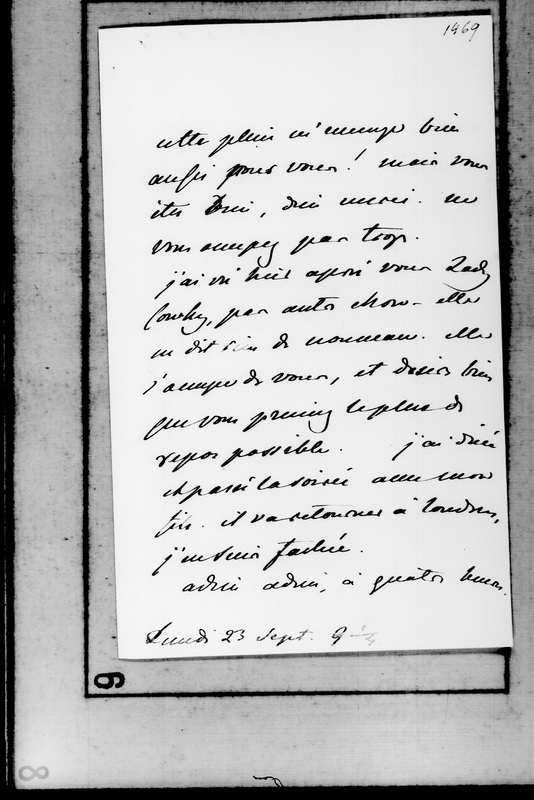 1469
cette pluie m'ennuye bien
aussi pour vous ! mais vous
êtes bien, bien merci. ne
vous occupez pas trop.
j'ai vu hier après vous Lady
Cowley, pas autre chose - elle
ne dit rien de nouveau. elle
s'occupe de vous, et desire bien
que vous preniez le plus de
repos possible. j'ai diné
et passé la soirée avec mon
fils. il va retourner à Londres,
j'en suis fachée.
adieu adieu, à quatre heures.
Lundi 23 Sept. 9
9
8